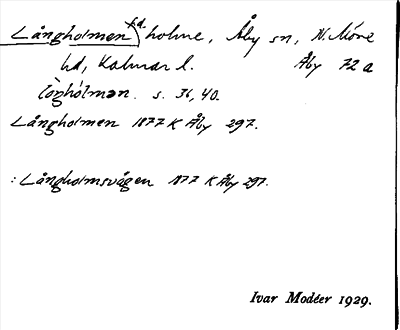 Långholmen, holme, Åby sn, N. Möre
hd, Kalmar l. Åby 72 a
s. 36, 40.
Långholmen 1877 K Åby 297.
: Långholmsvågen 1877 K Åby 297.
Ivar Modéer 1929.